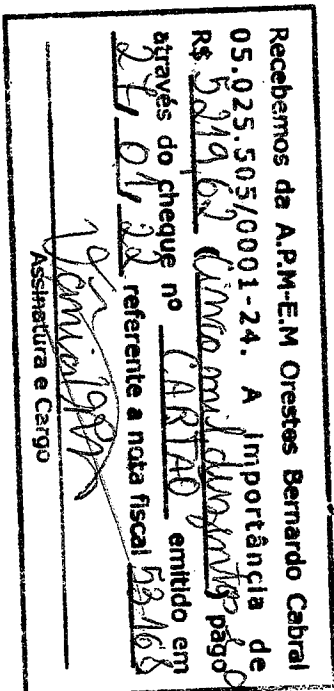 Recebemos da A.P.M-E.M Orestes Bernardo Cabral
05.025.505/0001-24. A importância de
R$ 5219,62 Cinco mil duzentos e pago
através do cheque nº CARTAO emitido em
01/22 referente a nota fiscal 53168
Assinatura e Cargo